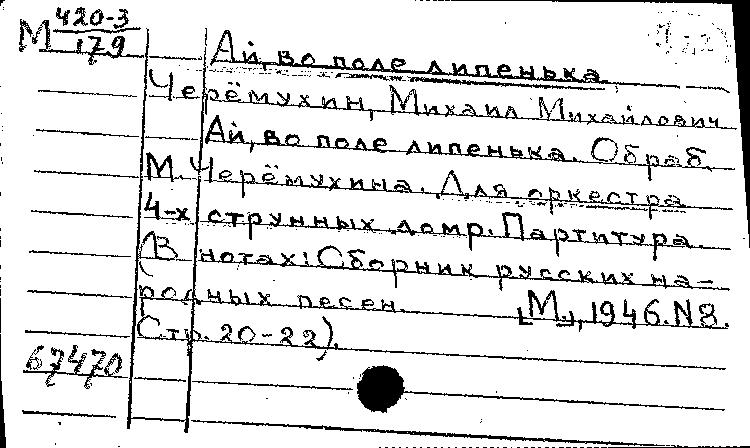 М 420-3
179
Ай, во поле липенька
Черёмухин, Михаил Михайлович
Ай, во поле липенька. Обраб.
М. Черёмухина. Для оркестра
4-х струнных домр. Партитура.
(В нотах: Сборник русских на-
родных песен. [М.], 1946. N8.
Стр. 20-22).
67470